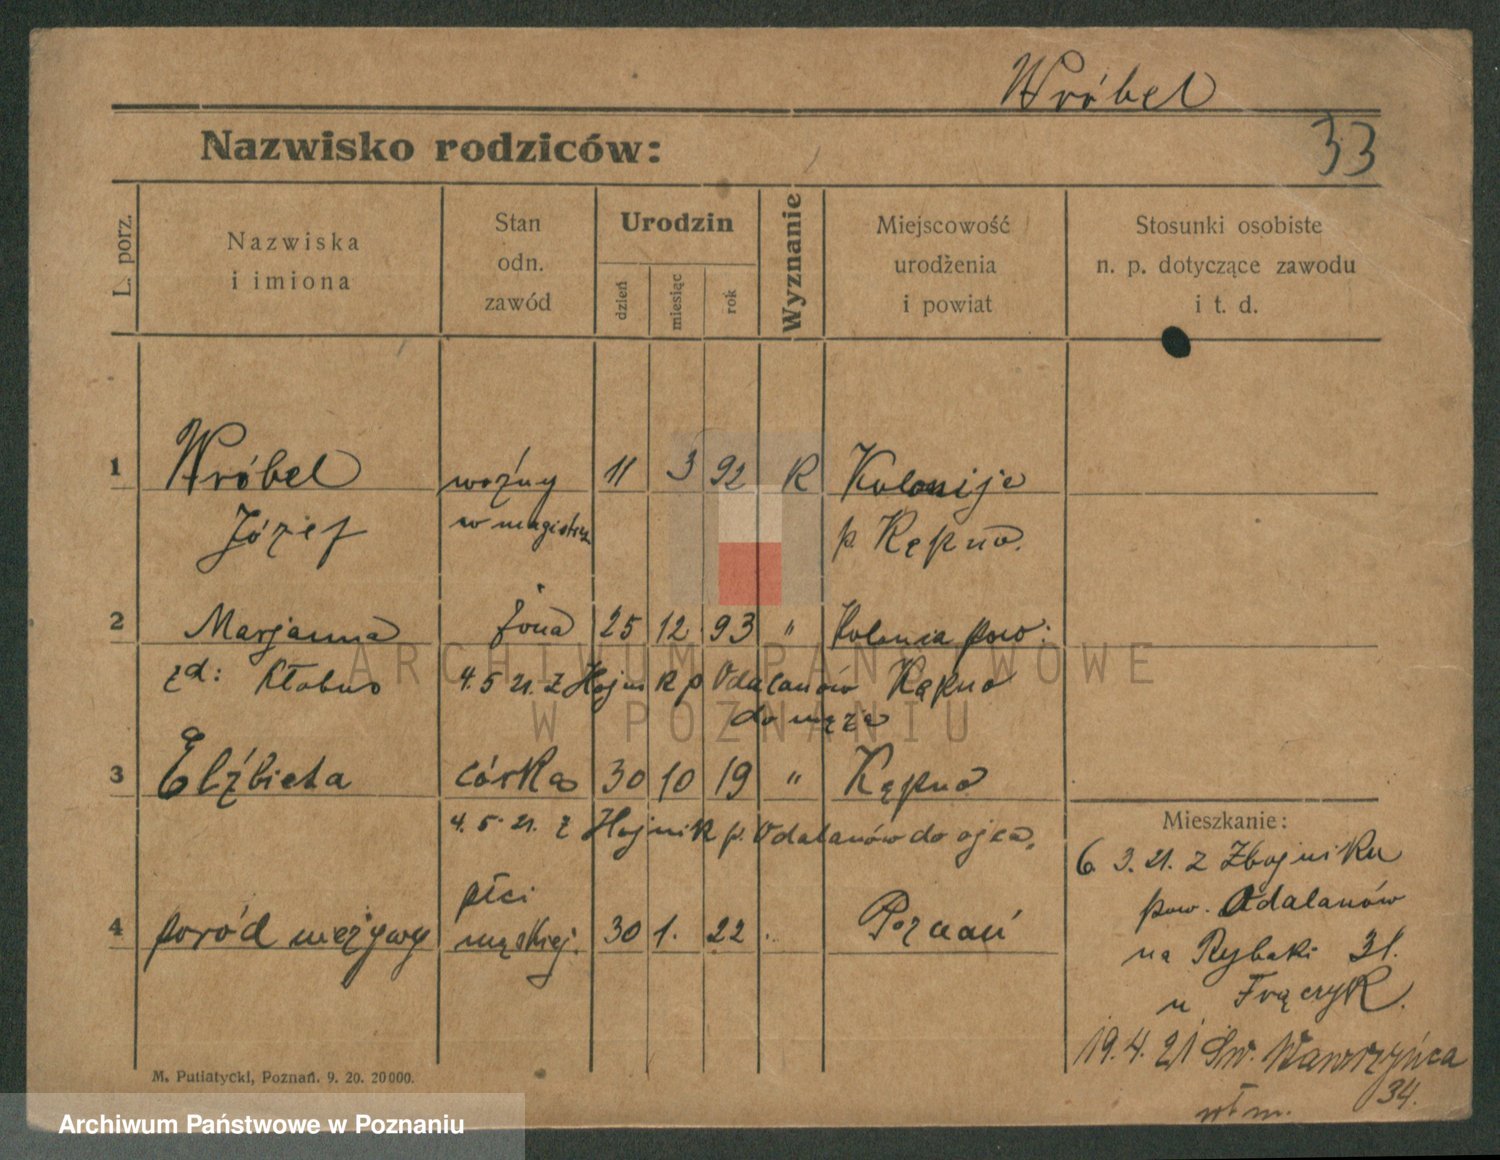 Wróbel
33
Nazwisko rodziców:
L. porz.
Nazwiska
i imiona
Stan
odn.
zawód
Urodzin
dzień
miesiąc
rok
Wyznanie
Miejscowość
urodzenia
i powiat
Stosunki osobiste
n. p. dotyczące zawodu
i t. d.
1 Wróbel woźny 11 3 92 R Kolonije
Józef w magistrz p. Kępno.
2 Marjanna żona 25 12 93 " Kolonia pow:
zd: Kłobus 4. 5 21. z Hojnik p Odalanów Kępno
do męża
3 Elżbieta córka 30 10 19 " Kępno
4. 5. 21. z Hojnik p. Odalanów do ojca.
4 poród nieżywy płci
męskiej. 30 1. 22 . Poznań
Mieszkanie:
6. 3. 21. z Zbojniku
pow. Odalanów
na Rybaki 31.
u Frączyk.
19. 4. 21 Św. Wawrzyńca
34.
wł m.
M. Putiatycki, Poznań. 9. 20. 20000.
ARCHIWUM PAŃSTWOWE
W POZNANIU
Archiwum Państwowe w Poznaniu